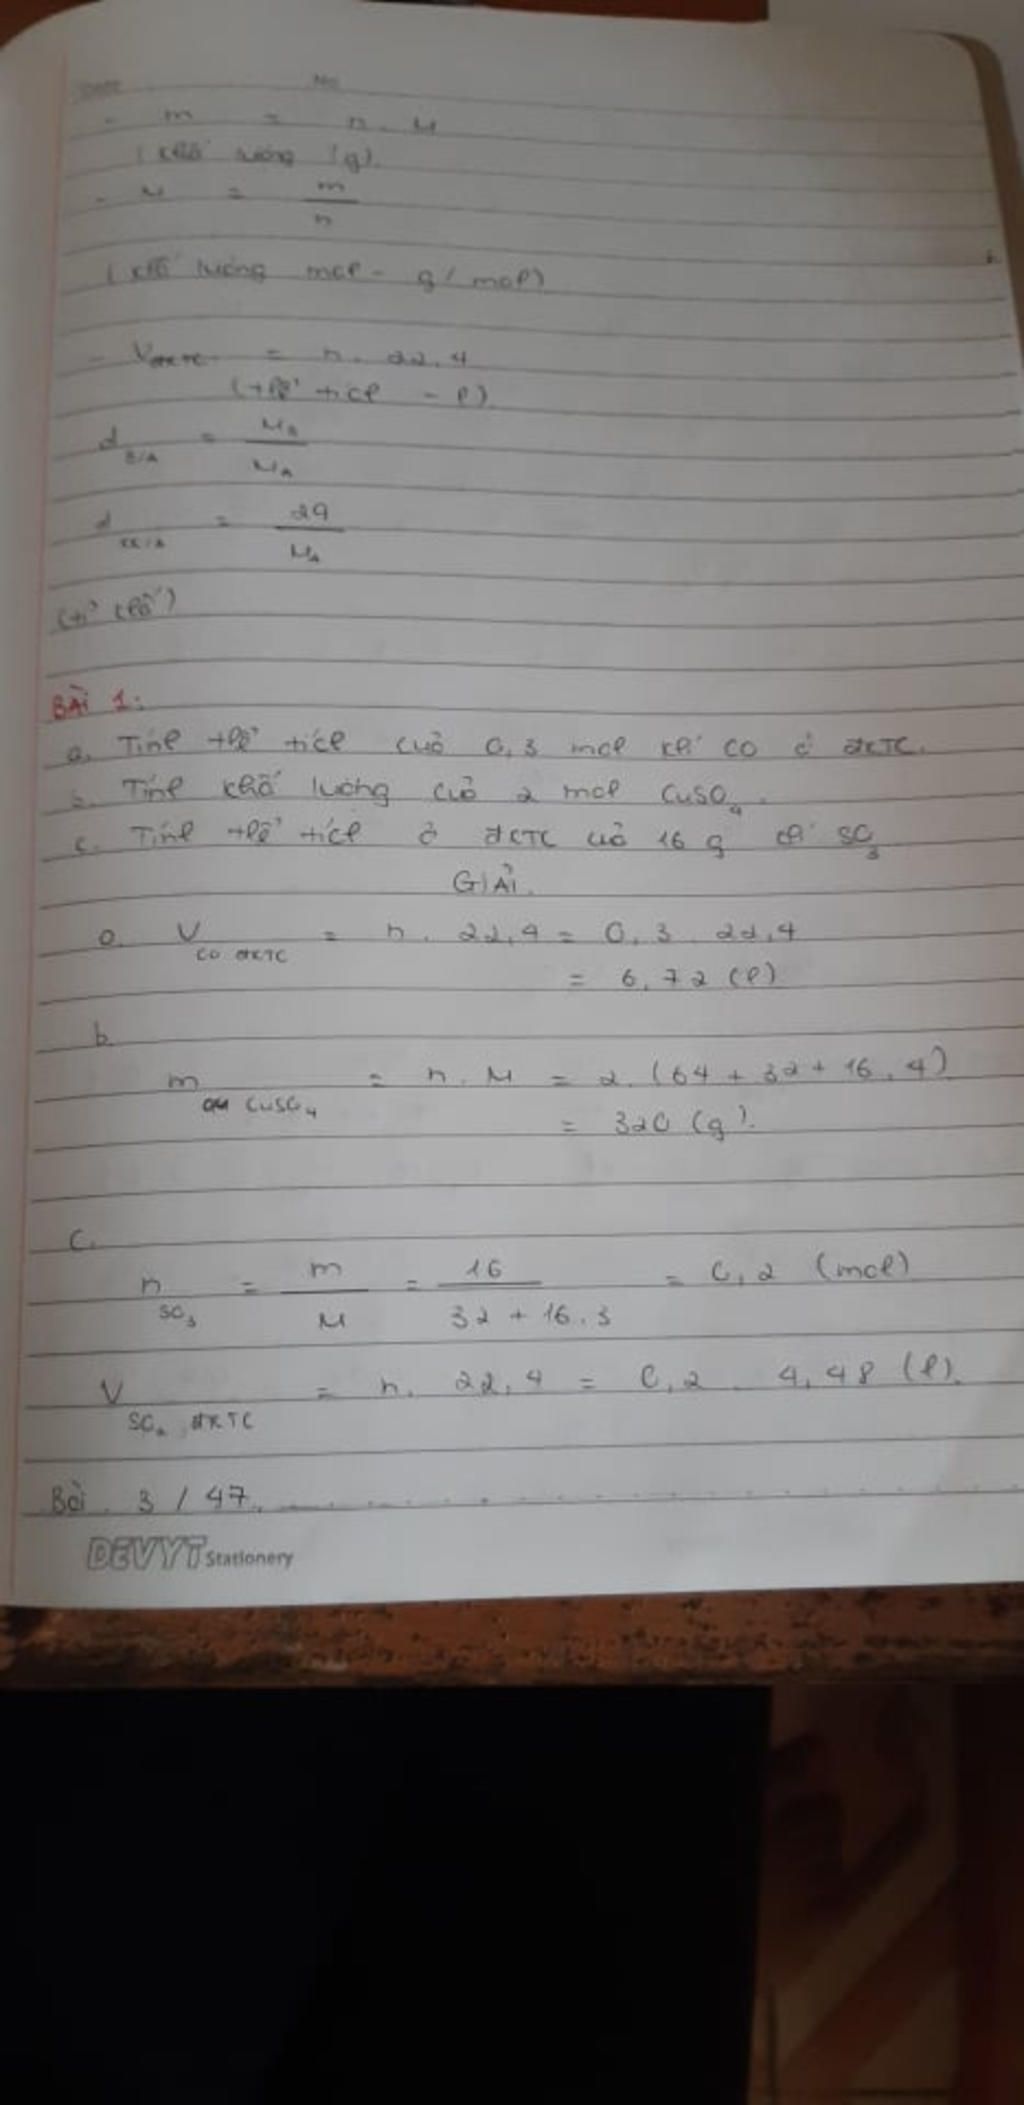 Date No
- m = n . M
(khố lượng (g).
- M = m / n
(khố lượng mol - g/mol)
- VĐKTC = n . 22,4
(thể tích - l)
d B/A = MB / MA
d KK/A = 29 / MA
(tỉ khố)
Bài 1:
a. Tính thể tích củả 0,3 mol khí CO ở ĐKTC.
b. Tính khố lượng củả 2 mol CuSO4.
c. Tính thể tích ở ĐKTC củả 16 g khí SO3
GIẢI.
a. V CO ĐKTC = n . 22,4 = 0,3 . 22,4
= 6,72 (l)
b
m CuSO4 = n . M = 2 . (64 + 32 + 16 . 4)
= 320 (g).
c.
n SO3 = m / M = 16 / 32 + 16 . 3 = 0,2 (mol)
V SO3 ĐKTC = n . 22,4 = 0,2 . 4,48 (l).
Bài 3 / 47.
DEVYT Stationery